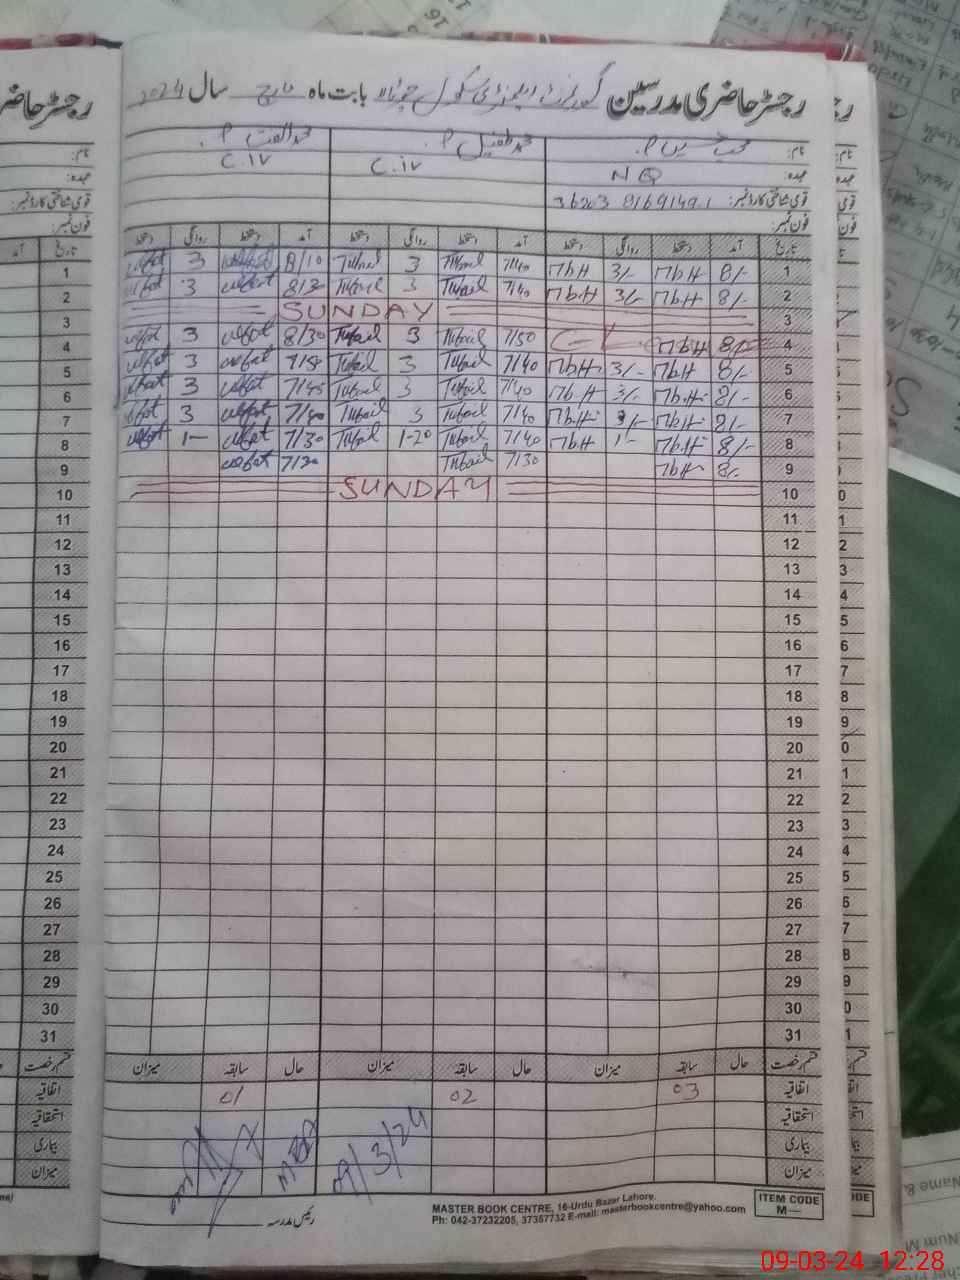 رجسٹر حاضری مدرسین گورنمنٹ سکول بابت ماہ مارچ سال 2024
نام: محب حسین P. محمد طفیل P. محمد الفت P.
عہدہ: NQ C.IV C.IV
قومی شناختی کارڈ نمبر: 36203 81691491
فون نمبر:
تاریخ آمد دستخط روانگی دستخط آمد دستخط روانگی دستخط آمد دستخط روانگی دستخط
1 8/- MbH 3/- MbH 7/40 Tufail 3 Tufail 8/10 ulfat 3 ulfat
2 8/- MbH 3/- MbH 7/40 Tufail 3 Tufail ulfat 3 ulfat
3 SUNDAY
4 8/- MbH C-L 7/50 Tufail 3 Tufail 8/30 ulfat 3 ulfat
5 8/- MbH 3/- MbH 7/40 Tufail 3 Tufail 7/50 ulfat 3 ulfat
6 8/- MbH 3/- MbH 7/40 Tufail 3 Tufail 7/45 ulfat 3 ulfat
7 8/- MbH 3/- MbH 7/40 Tufail 3 Tufail 7/40 ulfat 3 ulfat
8 8/- MbH 1- MbH 7/40 Tufail 1-20 Tufail 7/30 ulfat 1- ulfat
9 8/- MbH 7/30 Tufail 7/30 ulfat
10 SUNDAY
11
12
13
14
15
16
17
18
19
20
21
22
23
24
25
26
27
28
29
30
31
قسم رخصت حال سابقہ میزان حال سابقہ میزان حال سابقہ میزان
اتفاقیہ 03 02 01
استحقاقیہ
بیماری
میزان
9/3/24
رئیس مدرسہ
MASTER BOOK CENTRE, 16-Urdu Bazar Lahore.
Ph: 042-37232205, 37357732 E-mail: masterbookcentre@yahoo.com
ITEM CODE
M—
09-03-24 12:28